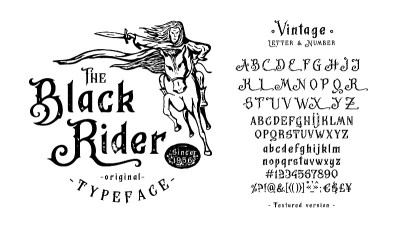 The
Black
Rider
-original-
-TYPEFACE-
Since
1956
Vintage
LETTER & NUMBER
ABCDEFGHIJ
KLMNOPQR
STUVWXYZ
ABCDEFGHIJKLMN
OPQRSTUVWXYZ
abcdefghijklm
nopqrstuvwxyz
#1234567890
- Textured version -